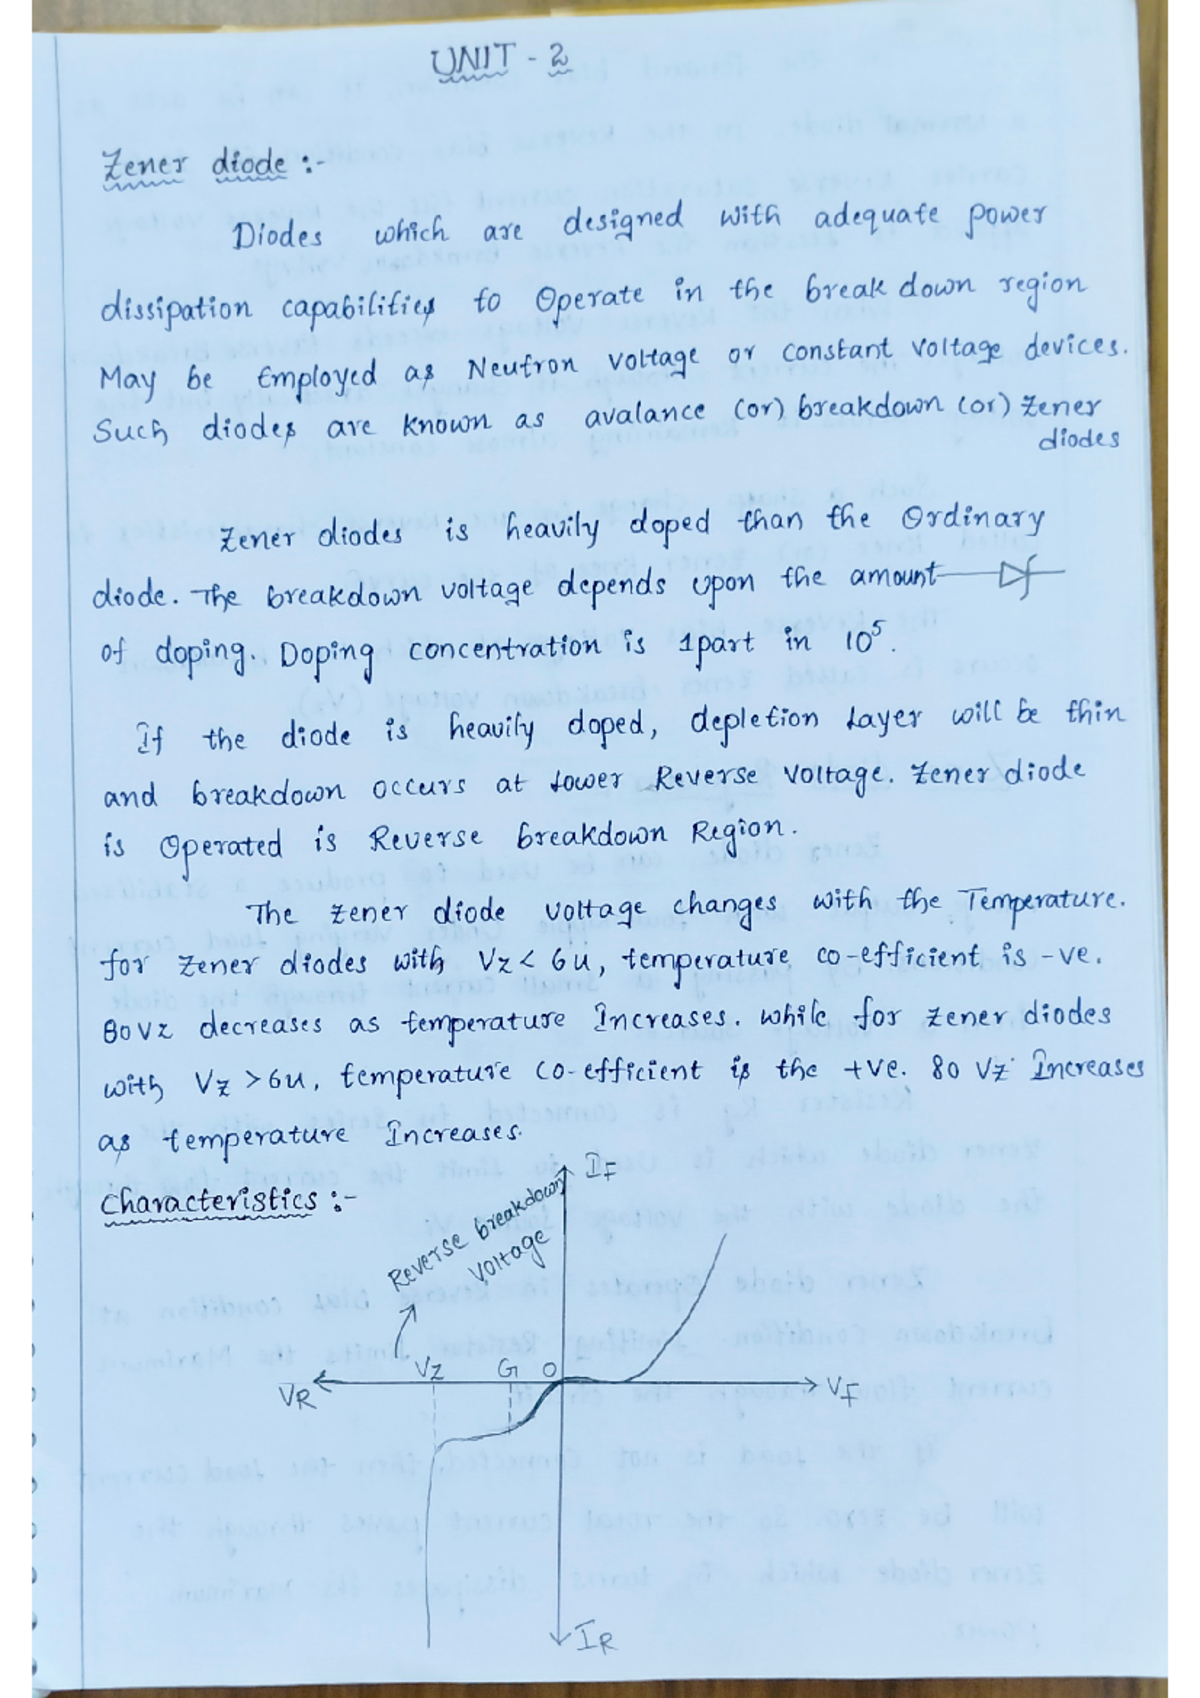 UNIT - 2
Zener diode :-
Diodes which are designed with adequate power
dissipation capabilities to Operate in the break down region
May be Employed as Neutron voltage or constant voltage devices.
Such diodes are known as avalance (or) breakdown (or) Zener
diodes
Zener diodes is heavily doped than the Ordinary
diode. The breakdown voltage depends upon the amount
of doping. Doping concentration is 1part in 10⁵.
If the diode is heavily doped, depletion Layer will be thin
and breakdown occurs at Lower Reverse voltage. Zener diode
is Operated is Reverse breakdown Region.
The Zener diode voltage changes with the Temperature.
for Zener diodes with Vz < 6u, temperature co-efficient is -ve.
80 Vz decreases as temperature Increases. while for Zener diodes
with Vz >6u, temperature co-efficient is the +ve. 80 Vz Increases
as temperature Increases.
Characteristics :-
IF
Reverse breakdown
Voltage
Vz G O
VR
VF
IR